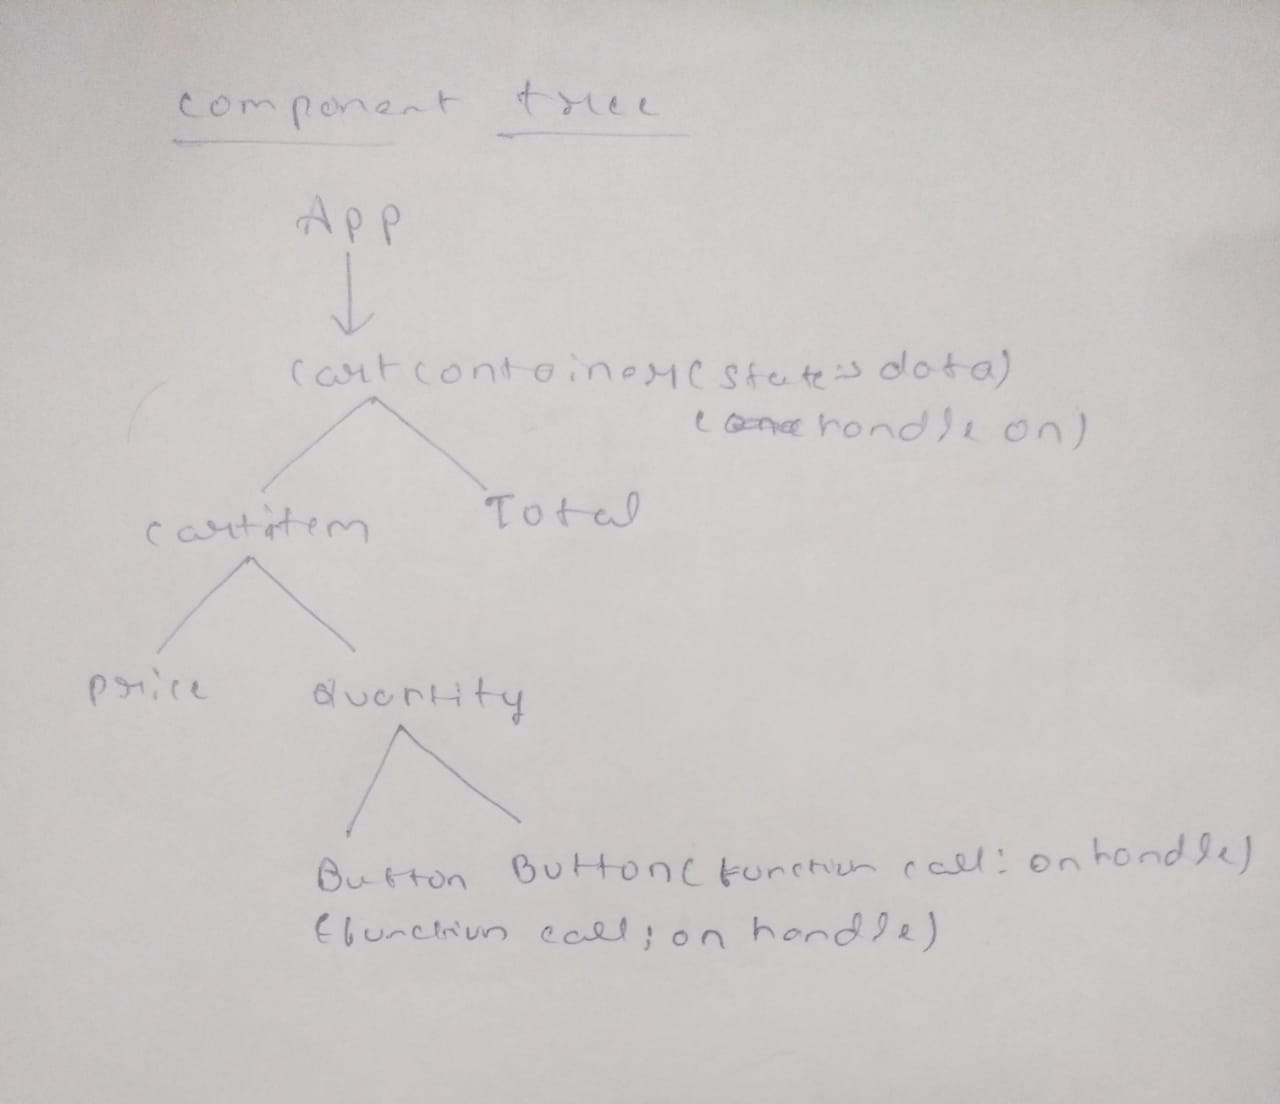 component tree
App
cartcontainer(state:data)
(handle on)
cartitem
Total
price
Quantity
Button
Button(function call: onhandle)
(function call; on handle)